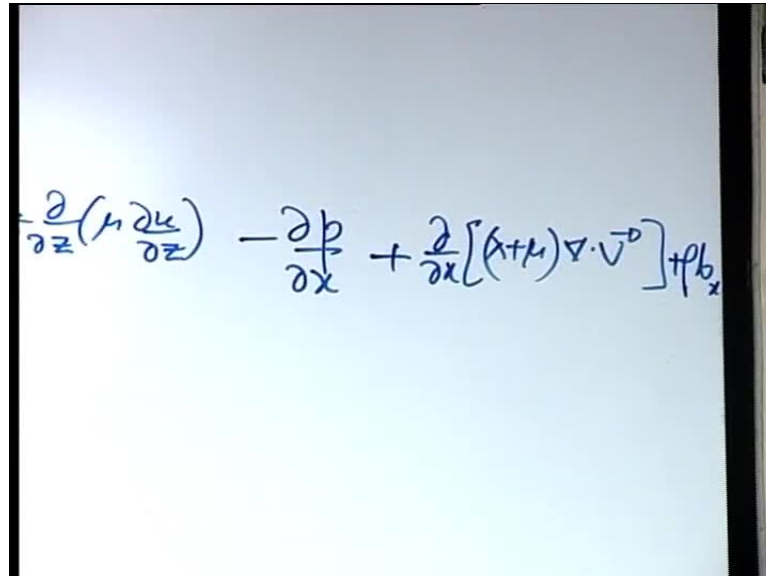 + ∂/∂z (μ ∂u/∂z) - ∂p/∂x + ∂/∂x [(λ+μ) ∇·V→] + ρb_x